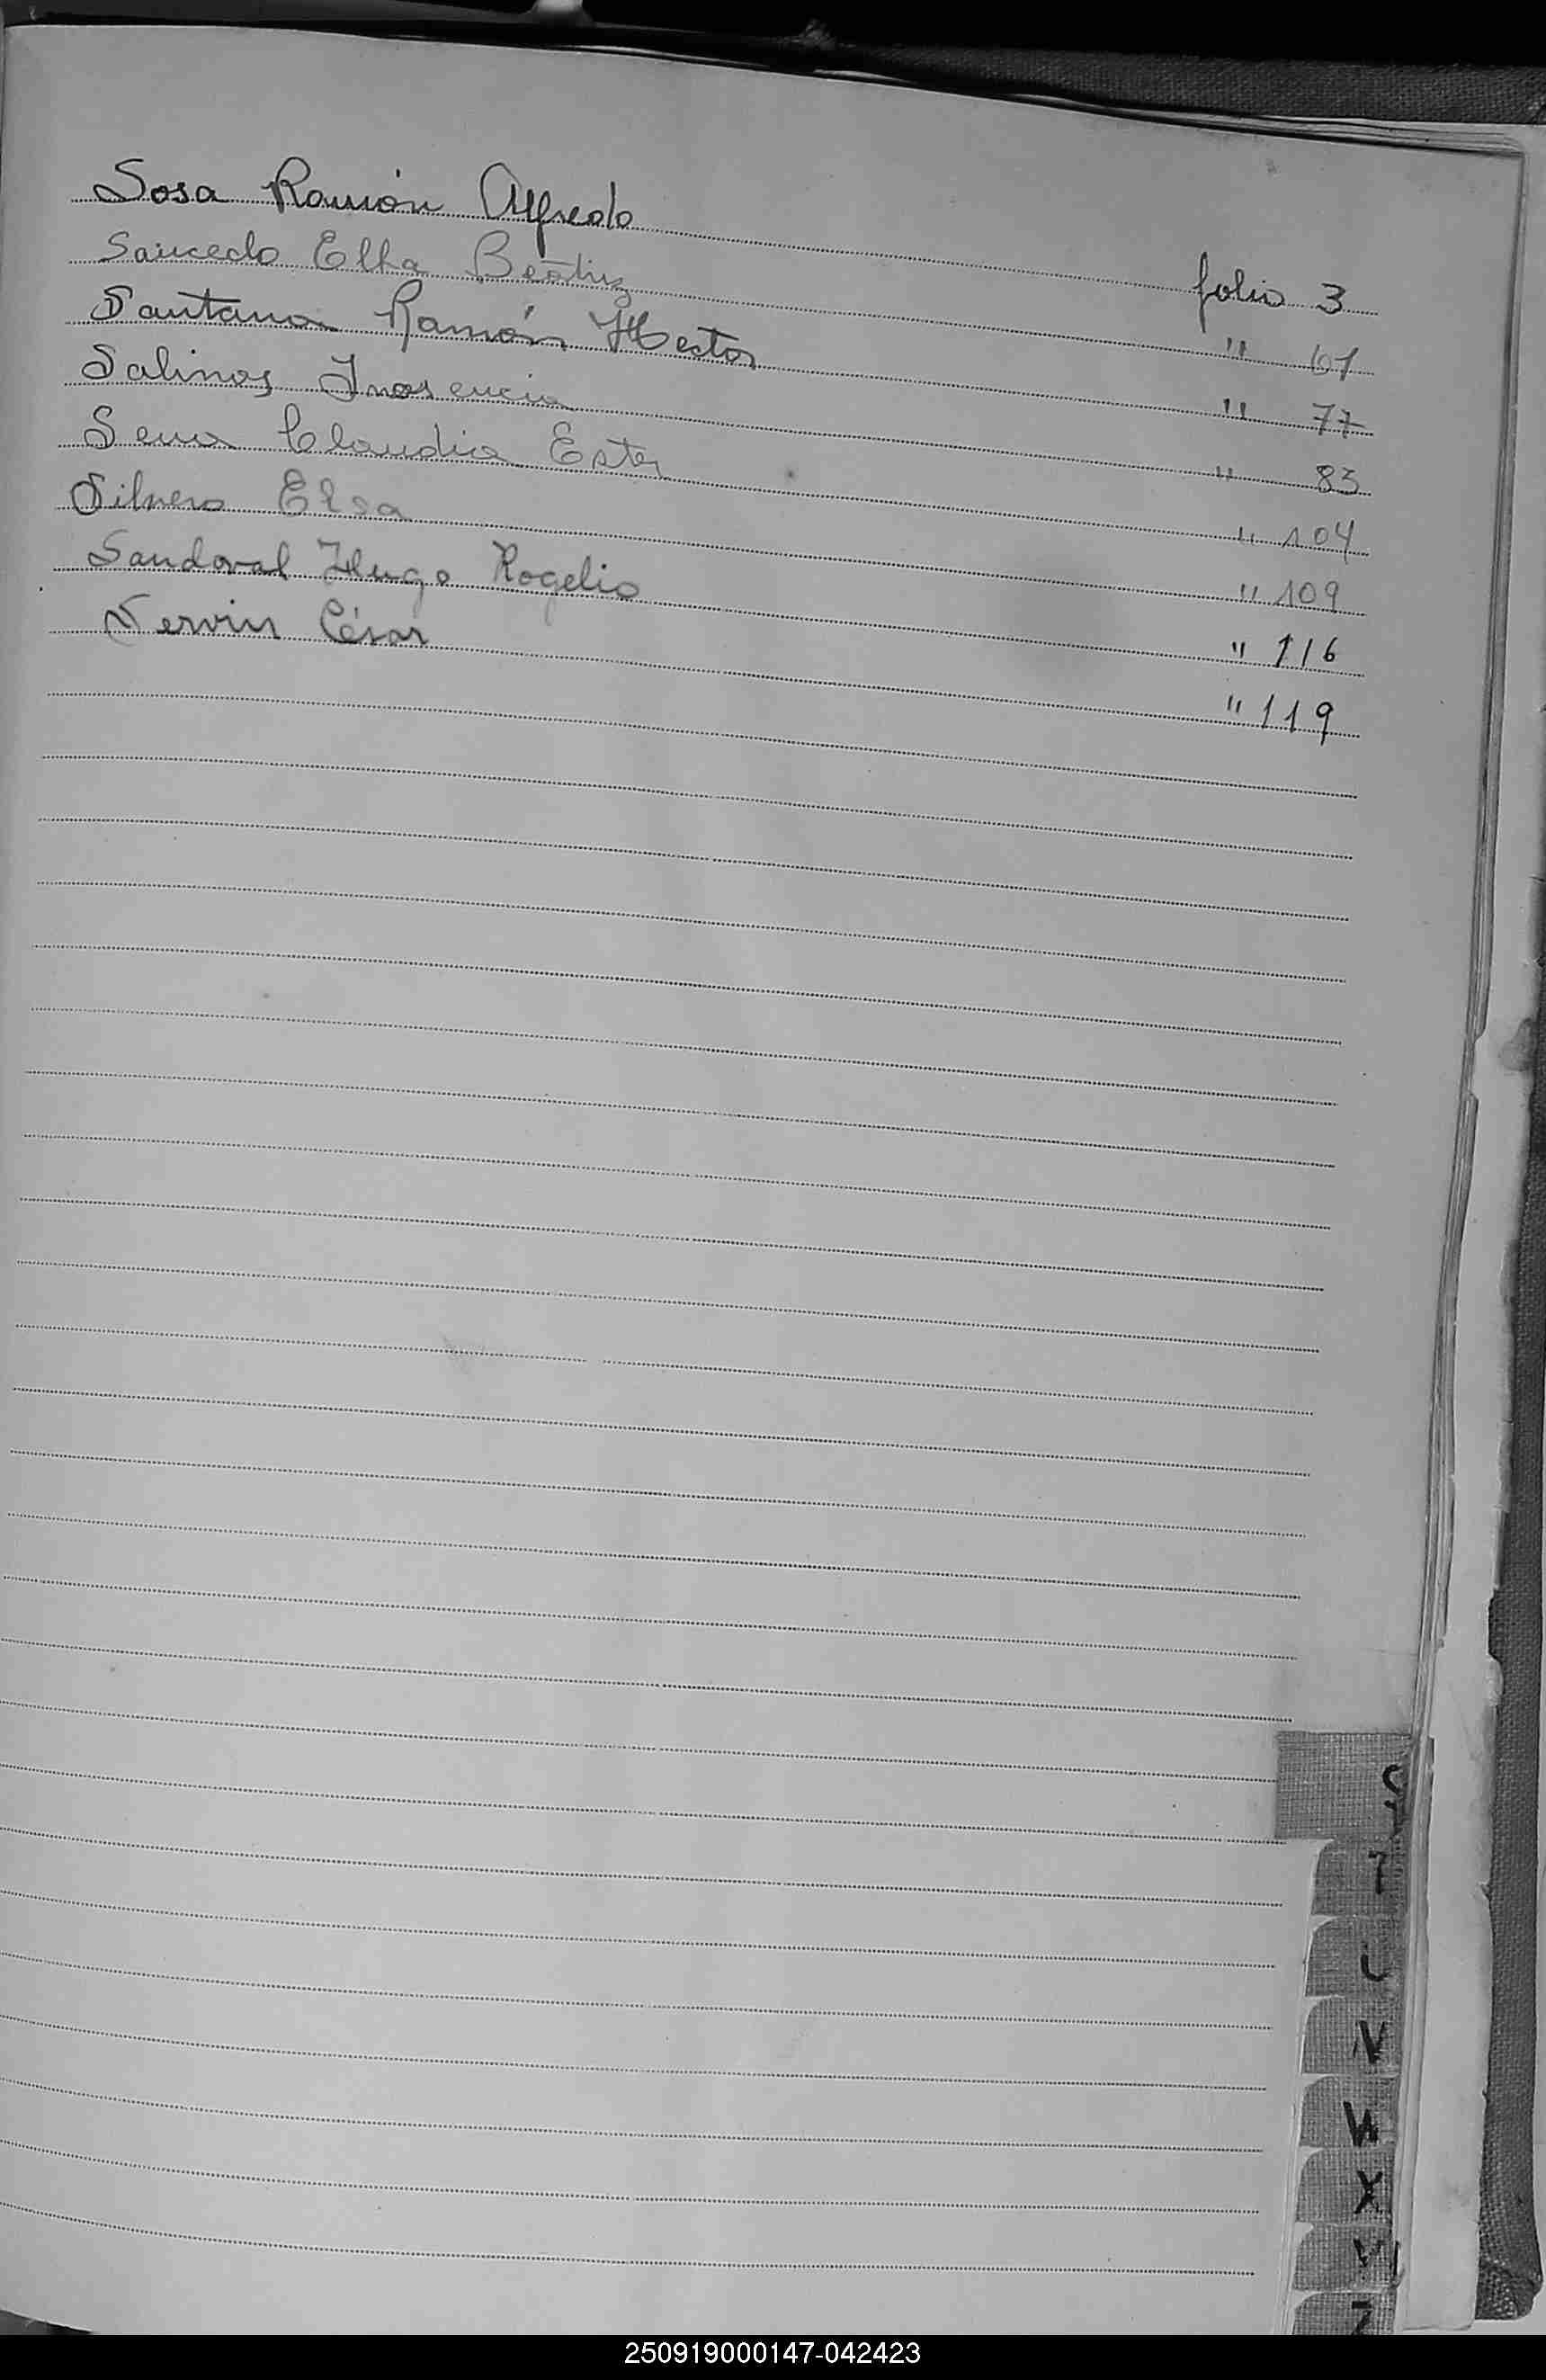 Sosa Ramón Alfredo folio 3
Saucedo Elba Beatriz " 67
Santana Ramón Hector " 77
Salinas Inosencia " 83
Sena Claudia Ester " 104
Silvero Elsa " 109
Sandoval Hugo Rogelio " 116
Servin César " 119
S
T
U
V
W
X
Y
Z
250919000147-042423